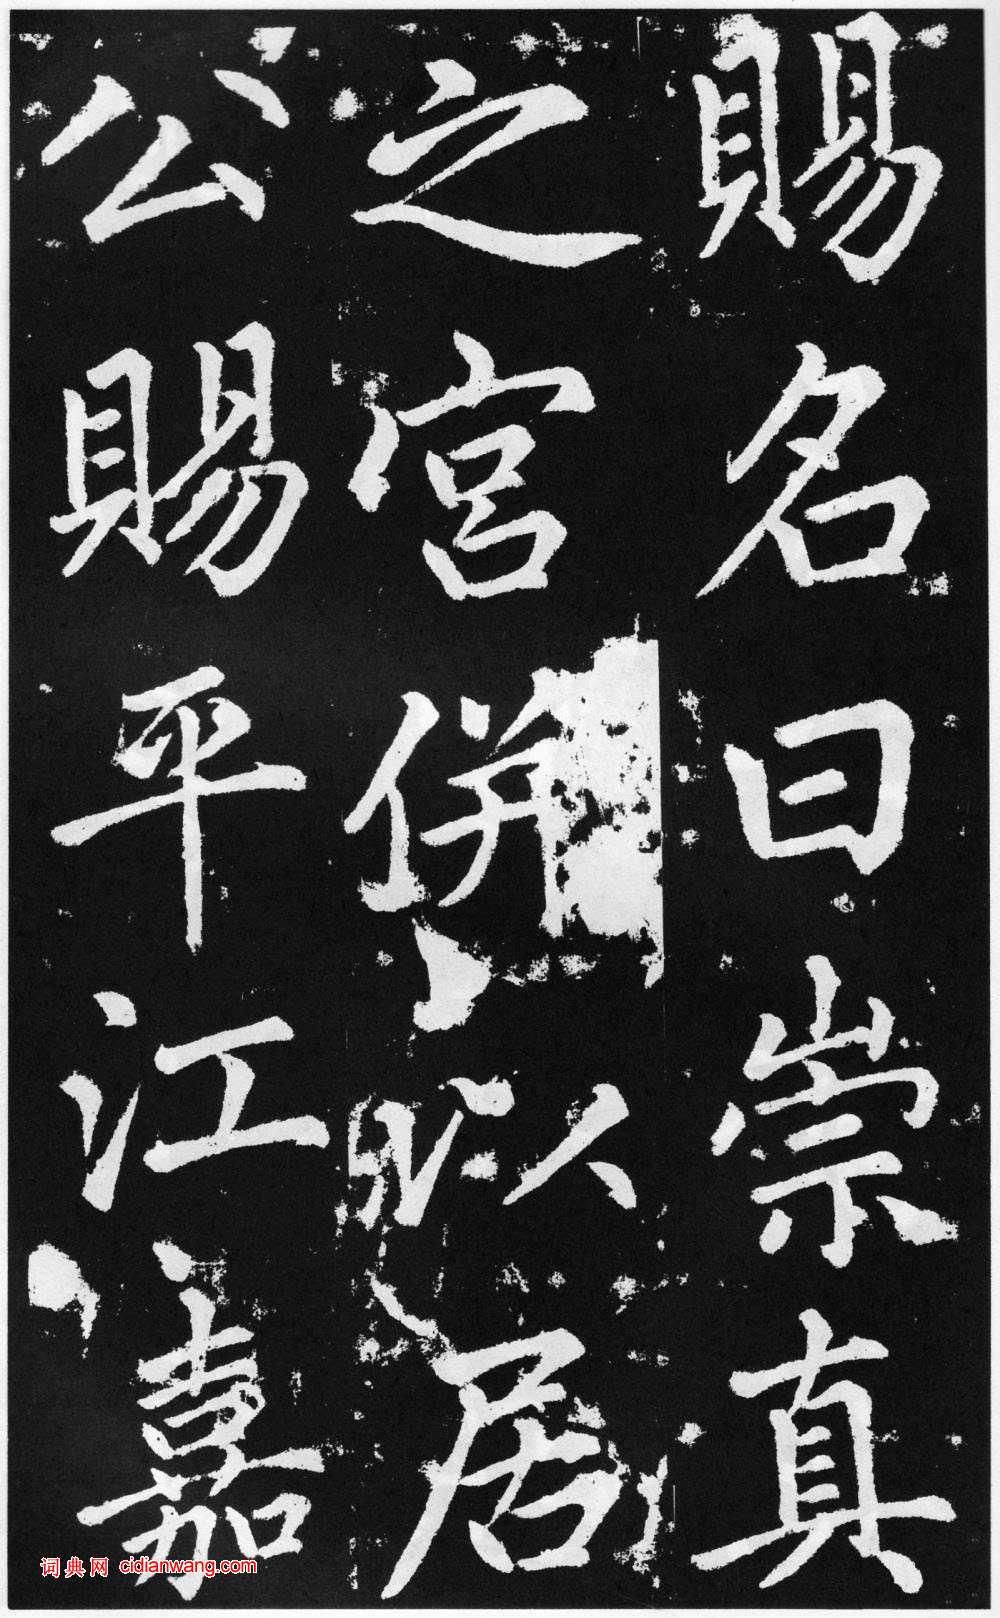 賜名曰崇真
之宮併以居
公賜平江嘉
词典网 cidianwang.com